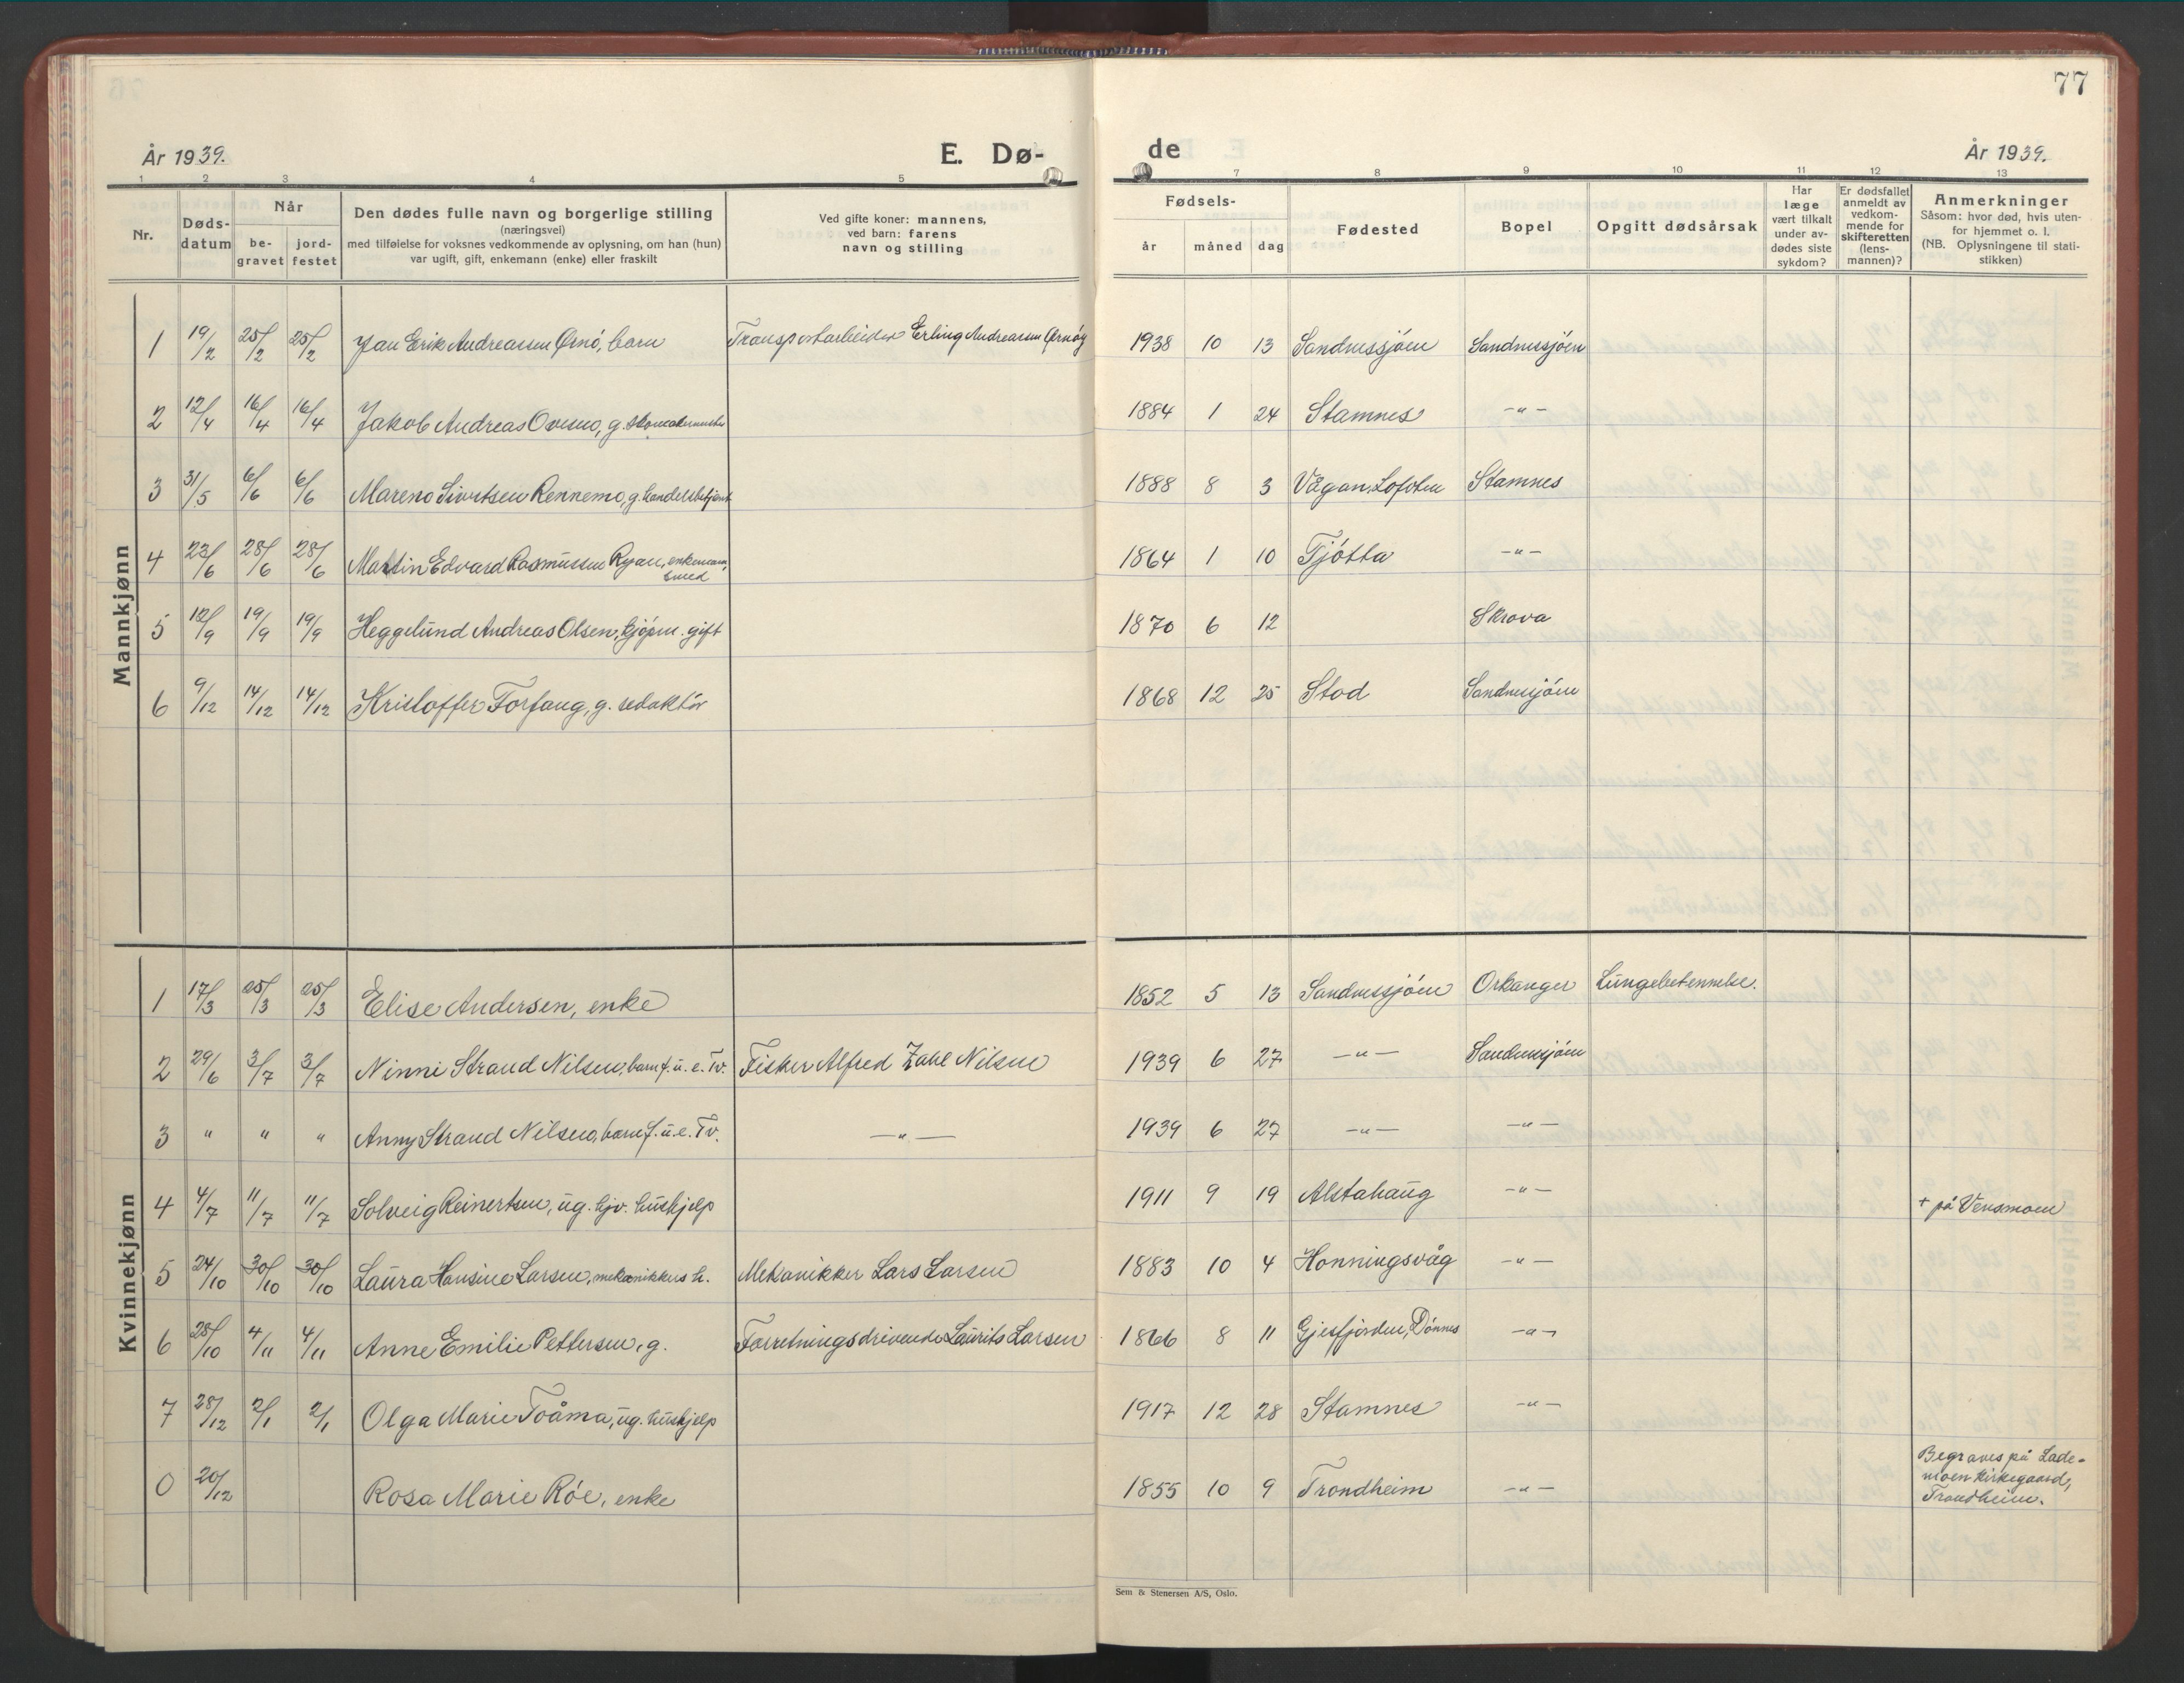 77
År 1939.
E. Dø-
de
År 1939.
1 2 3 4 5 7 8 9 10 11 12 13
Nr.
Døds-
datum
Når
be-
gravet
jord-
festet
Den dødes fulle navn og borgerlige stilling
(næringsvei)
med tilføielse for voksnes vedkommende av oplysning, om han (hun)
var ugift, gift, enkemann (enke) eller fraskilt
Ved gifte koner: mannens,
ved barn: farens
navn og stilling
Fødsels-
år måned dag
Fødested
Bopel
Opgitt dødsårsak
Har
læge
vært tilkalt
under av-
dødes siste
sykdom?
Er dødsfallet
anmeldt av
vedkom-
mende for
skifteretten
(lens-
mannen)?
Anmerkninger
Såsom: hvor død, hvis uten-
for hjemmet o. l.
(NB. Oplysningene til stati-
stikken)
Mannkjønn
1 19/2 25/2 25/2 Jan Erik Andreassen Ørnö, barn Transportarbeider Erling Andreassen Ørnöy 1938 10 13 Sandnessjöen Sandnessjöen
2 12/4 16/4 16/4 Jakob Andreas Ovesen, g. skomakermester 1884 1 24 Stamnes -"-
3 31/5 6/6 6/6 Mareno Sivertsen Rennemo, g. handelsbetjent 1888 8 3 Vågan, Lofoten Stamnes
4 23/6 28/6 28/6 Martin Edvard Rasmussen Ryan, enkemann, smed 1864 1 10 Tjötta -"-
5 12/9 19/9 19/9 Heggelund Andreas Olsen, kjöpm. gift 1870 6 12 Skrova
6 9/12 14/12 14/12 Kristoffer Forfang, g. redaktör 1868 12 25 Stod Sandnessjöen
Kvinnekjønn
1 17/3 25/3 25/3 Elise Andersen, enke 1852 5 13 Sandnessjöen Orkanger Lungebetennelse.
2 29/6 3/7 3/7 Ninni Strand Nilsen, barn f. u. e. Tv. Fisker Alfred Zahl Nilsen 1939 6 27 -"- Sandnessjöen
3 " " " Anny Strand Nilsen, barn f. u. e. Tv. -"- 1939 6 27 -"- -"-
4 4/7 11/7 11/7 Solveig Reinertsen, ug. hjv. hushjelp 1911 9 19 Alstahaug -"- + på Vensmoen
5 24/10 30/10 30/10 Laura Hansine Larsen, mekanikkers h. Mekanikker Lars Larsen 1883 10 4 Honningsvåg -"-
6 28/10 4/11 4/11 Anne Emilie Pettersen, g. Forretningsdrivende Laurits Larsen 1866 8 11 Gjesfjorden, Dönnes -"-
7 28/12 2/1 2/1 Olga Marie Toåma, ug. hushjelp 1917 12 28 Stamnes -"-
0 20/12 Rosa Marie Röe, enke 1855 10 9 Trondheim -"- Begraves på Lade-
moen kirkegaard,
Trondheim.
Sem & Stenersen A/S, Oslo.